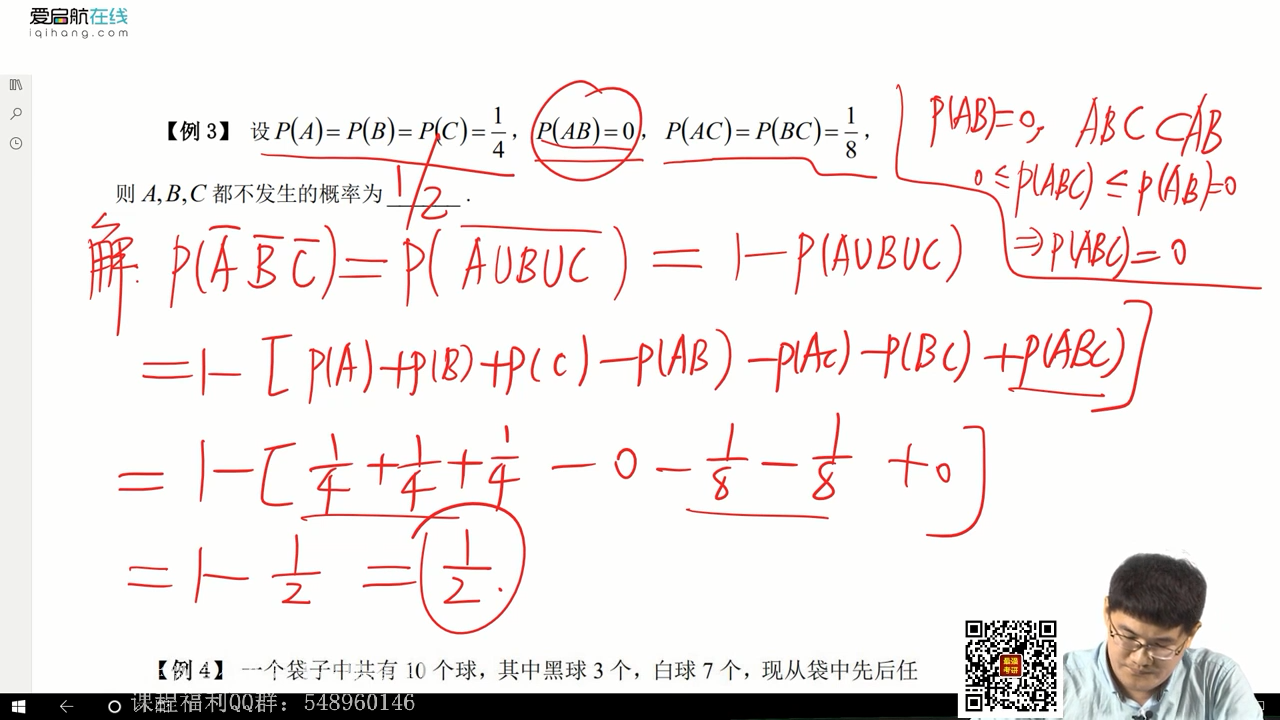 爱启航在线
iqihang.com
【例3】 设 P(A)=P(B)=P(C)=1/4, P(AB)=0, P(AC)=P(BC)=1/8,
则 A,B,C 都不发生的概率为 1/2 .
P(AB)=0, ABC⊂AB
0≤P(ABC)≤P(AB)=0
⇒P(ABC)=0
解. P(A̅ B̅ C̅)=P(\overline{A∪B∪C}) = 1-P(A∪B∪C)
=1-[P(A)+P(B)+P(C)-P(AB)-P(AC)-P(BC)+P(ABC)]
=1-[1/4+1/4+1/4-0-1/8-1/8+0]
=1-1/2=1/2.
【例4】 一个袋子中共有 10 个球，其中黑球 3 个，白球 7 个，现从袋中先后任
课程福利QQ群：548960146